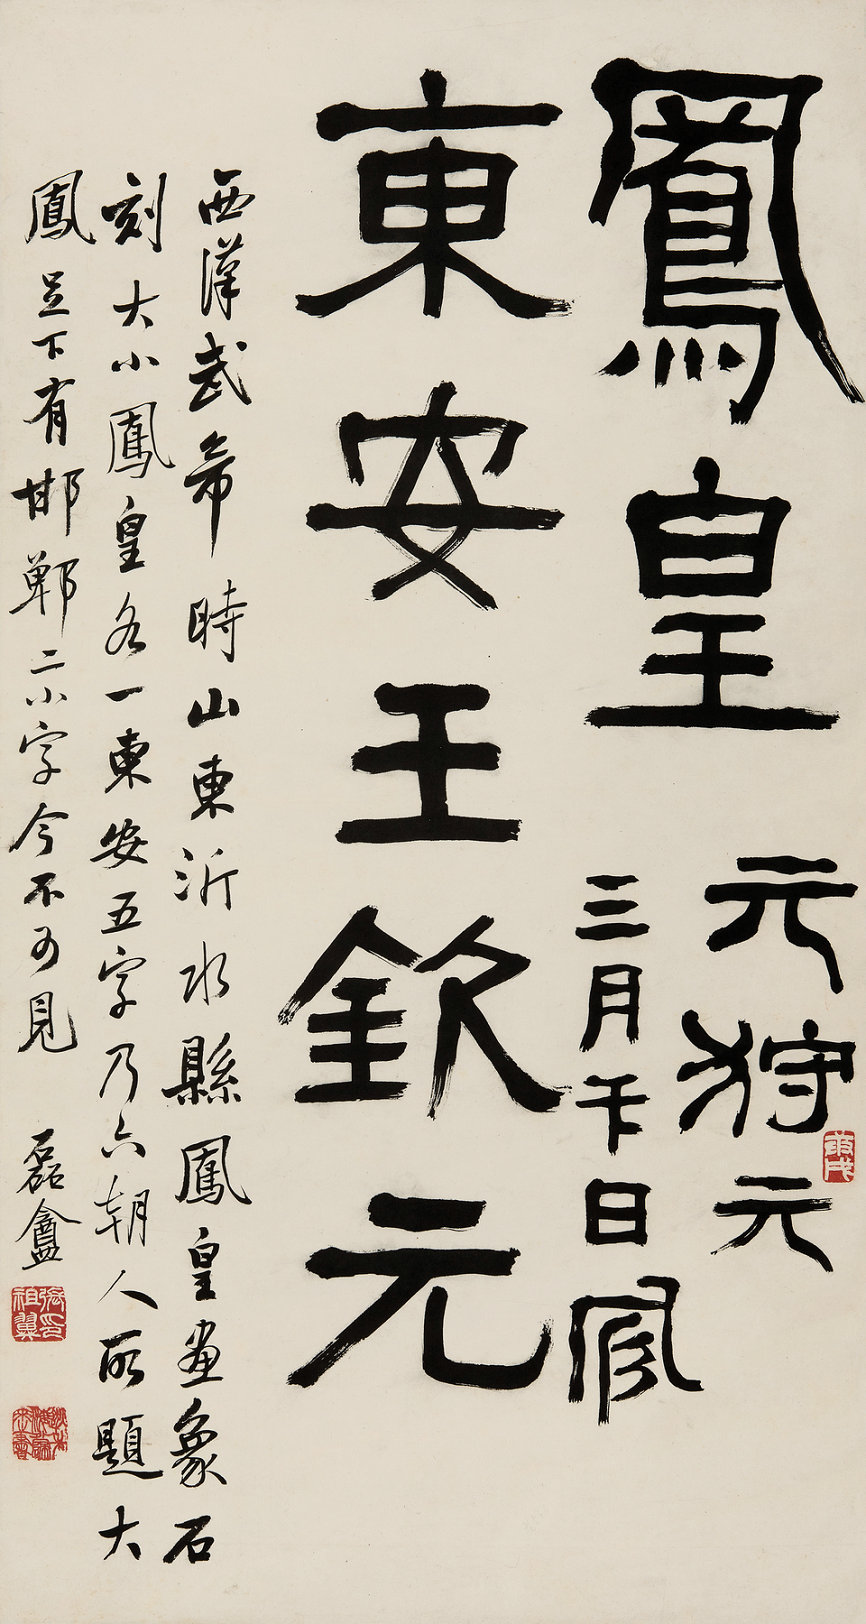 鳳皇
元狩元
三月
日
東安王欽元
西漢武帝時山東沂水縣鳳皇畫象石
刻大小鳳皇各一東安五字乃六朝人所題大
鳳足下有邯鄲二小字今不可見 磊盦
庚戌
張印祖翼